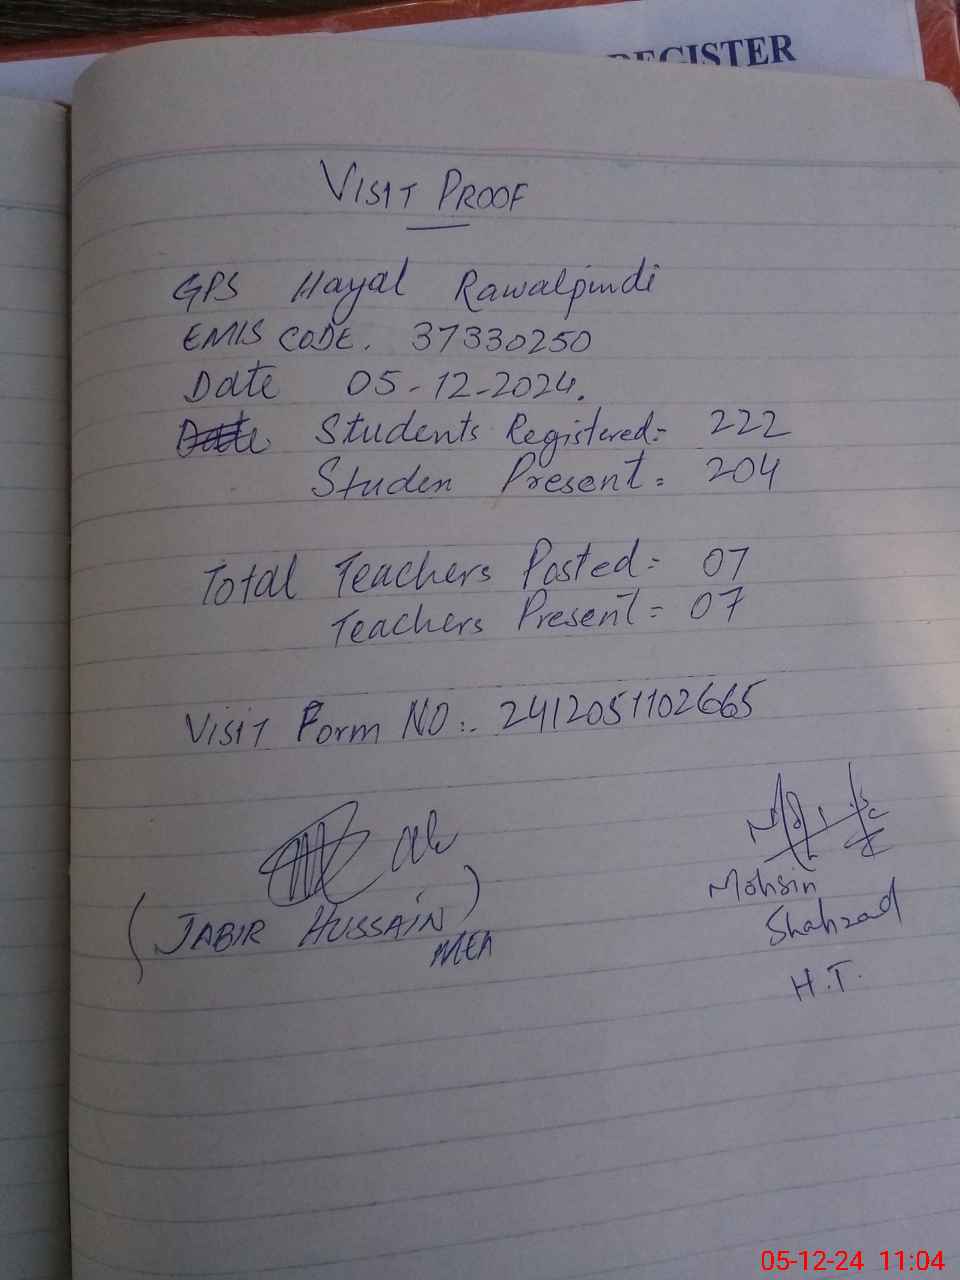 REGISTER
VISIT PROOF
GPS Hayal Rawalpindi
EMIS CODE. 37330250
Date 05-12-2024.
Date Students Registered= 222
Studen Present= 204
Total Teachers Posted= 07
Teachers Present= 07
Visit Form NO:. 2412051102665
(JABIR HUSSAIN)
MEA
Mohsin
Shahzad
H.T.
05-12-24 11:04